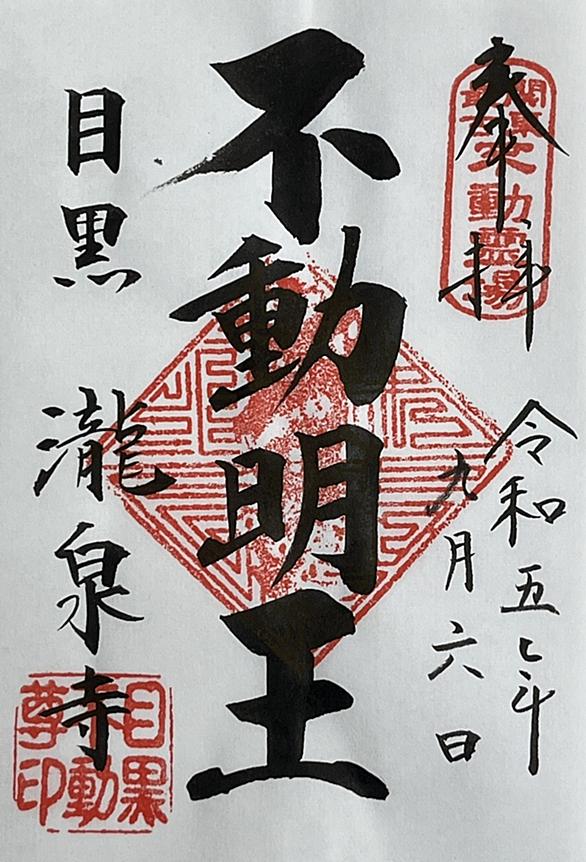 奉拝
關東最古
不動霊場
令和五年
九月六日
不動明王
目黒 瀧泉寺
目黒
不動
尊印